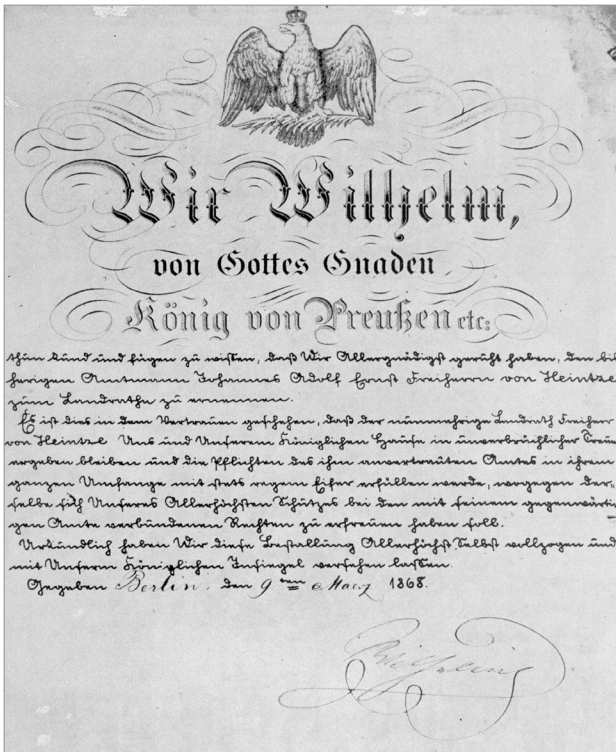 Wir Wilhelm,
von Gottes Gnaden
König von Preußen etc:
thun kund und fügen zu wissen, daß Wir Allergnädigst geruht haben, den bis
herigen Amtmann Johannes Adolf Ernst Freiherrn von Heintze
zum Landrathe zu ernennen.
Es ist dies in dem Vertrauen geschehen, daß der nunmehrige Landrath Freiherr
von Heintze Uns und Unserem Königlichen Hause in unverbrüchlicher Treue
ergeben bleiben und die Pflichten des ihm anvertrauten Amtes in ihrem
ganzen Umfange mit stets regem Eifer erfüllen werde, wogegen der-
selbe sich Unseres Allerhöchsten Schutzes bei den mit seinem gegenwärti-
gen Amte verbundenen Rechten zu erfreuen haben soll.
Urkundlich haben Wir diese Bestallung Allerhöchst Selbst vollzogen und
mit Unserm Königlichen Insiegel versehen lassen.
Gegeben Berlin, den 9ten Maerz 1868.
Wilhelm